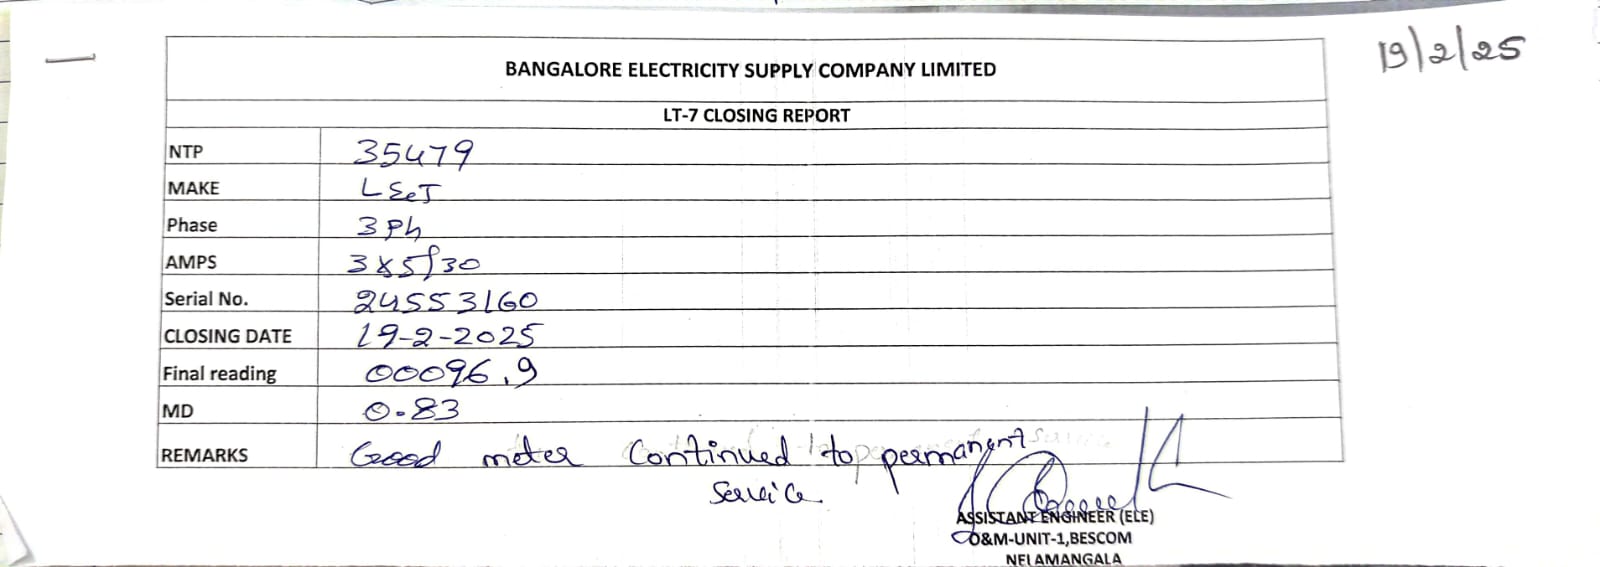 19/2/25
BANGALORE ELECTRICITY SUPPLY COMPANY LIMITED
LT-7 CLOSING REPORT
NTP 35479
MAKE L&T
Phase 3 Ph
AMPS 3x5/30
Serial No. 24553160
CLOSING DATE 19-2-2025
Final reading 00096.9
MD 0.83
REMARKS Good meter Continued to permanent
Service
ASSISTANT ENGINEER (ELE)
O&M-UNIT-1,BESCOM
NELAMANGALA